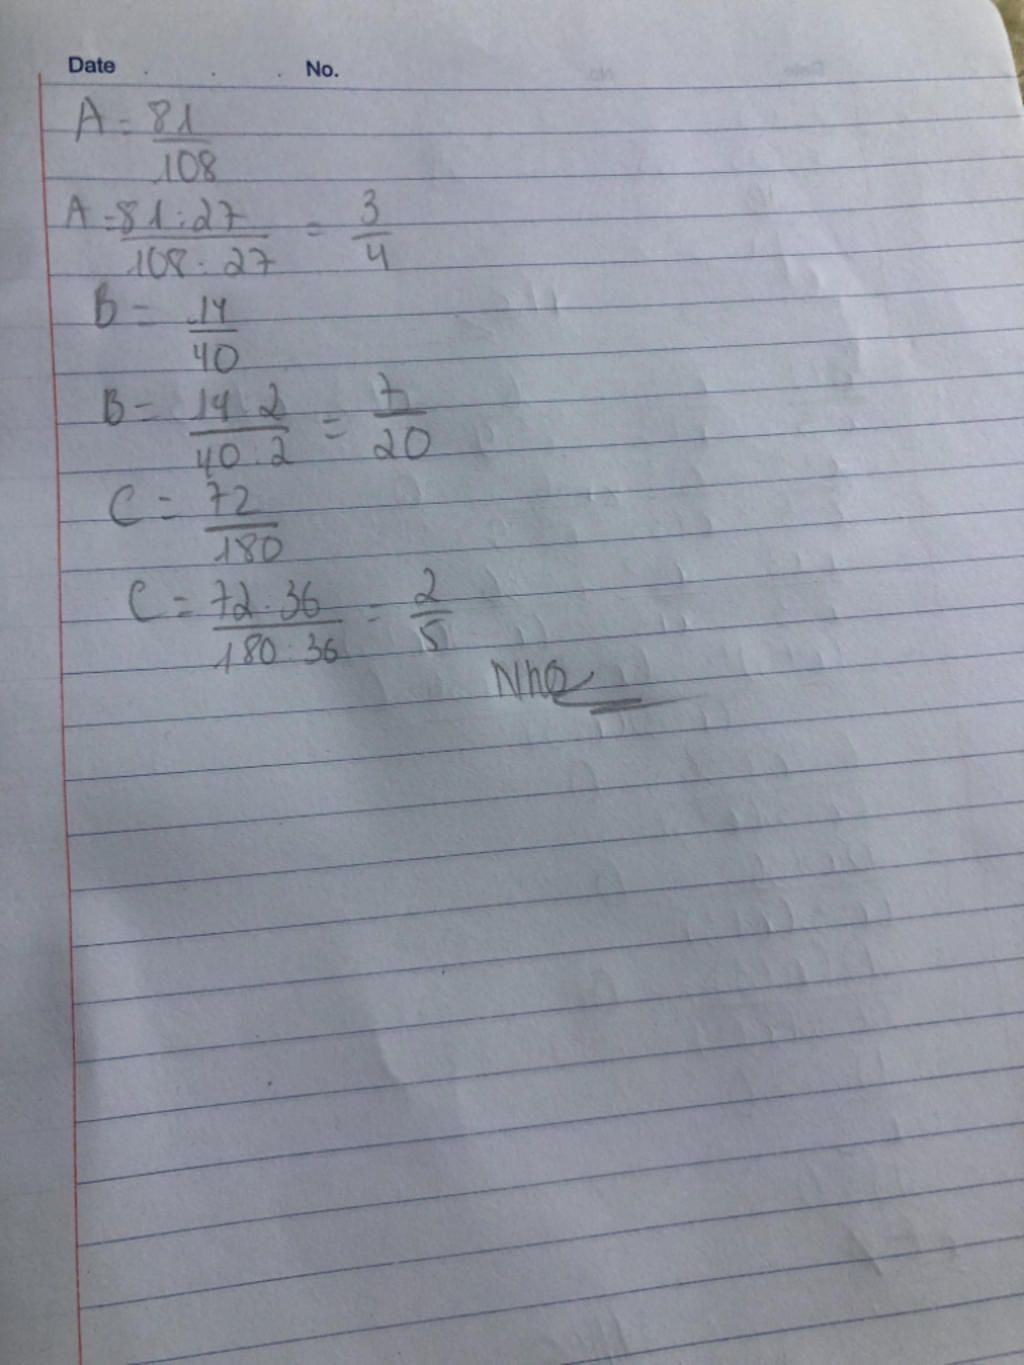 Date No.
A = 81/108
A = 81:27/108:27 = 3/4
B = 14/40
B = 14:2/40:2 = 7/20
C = 72/180
C = 72:36/180:36 = 2/5